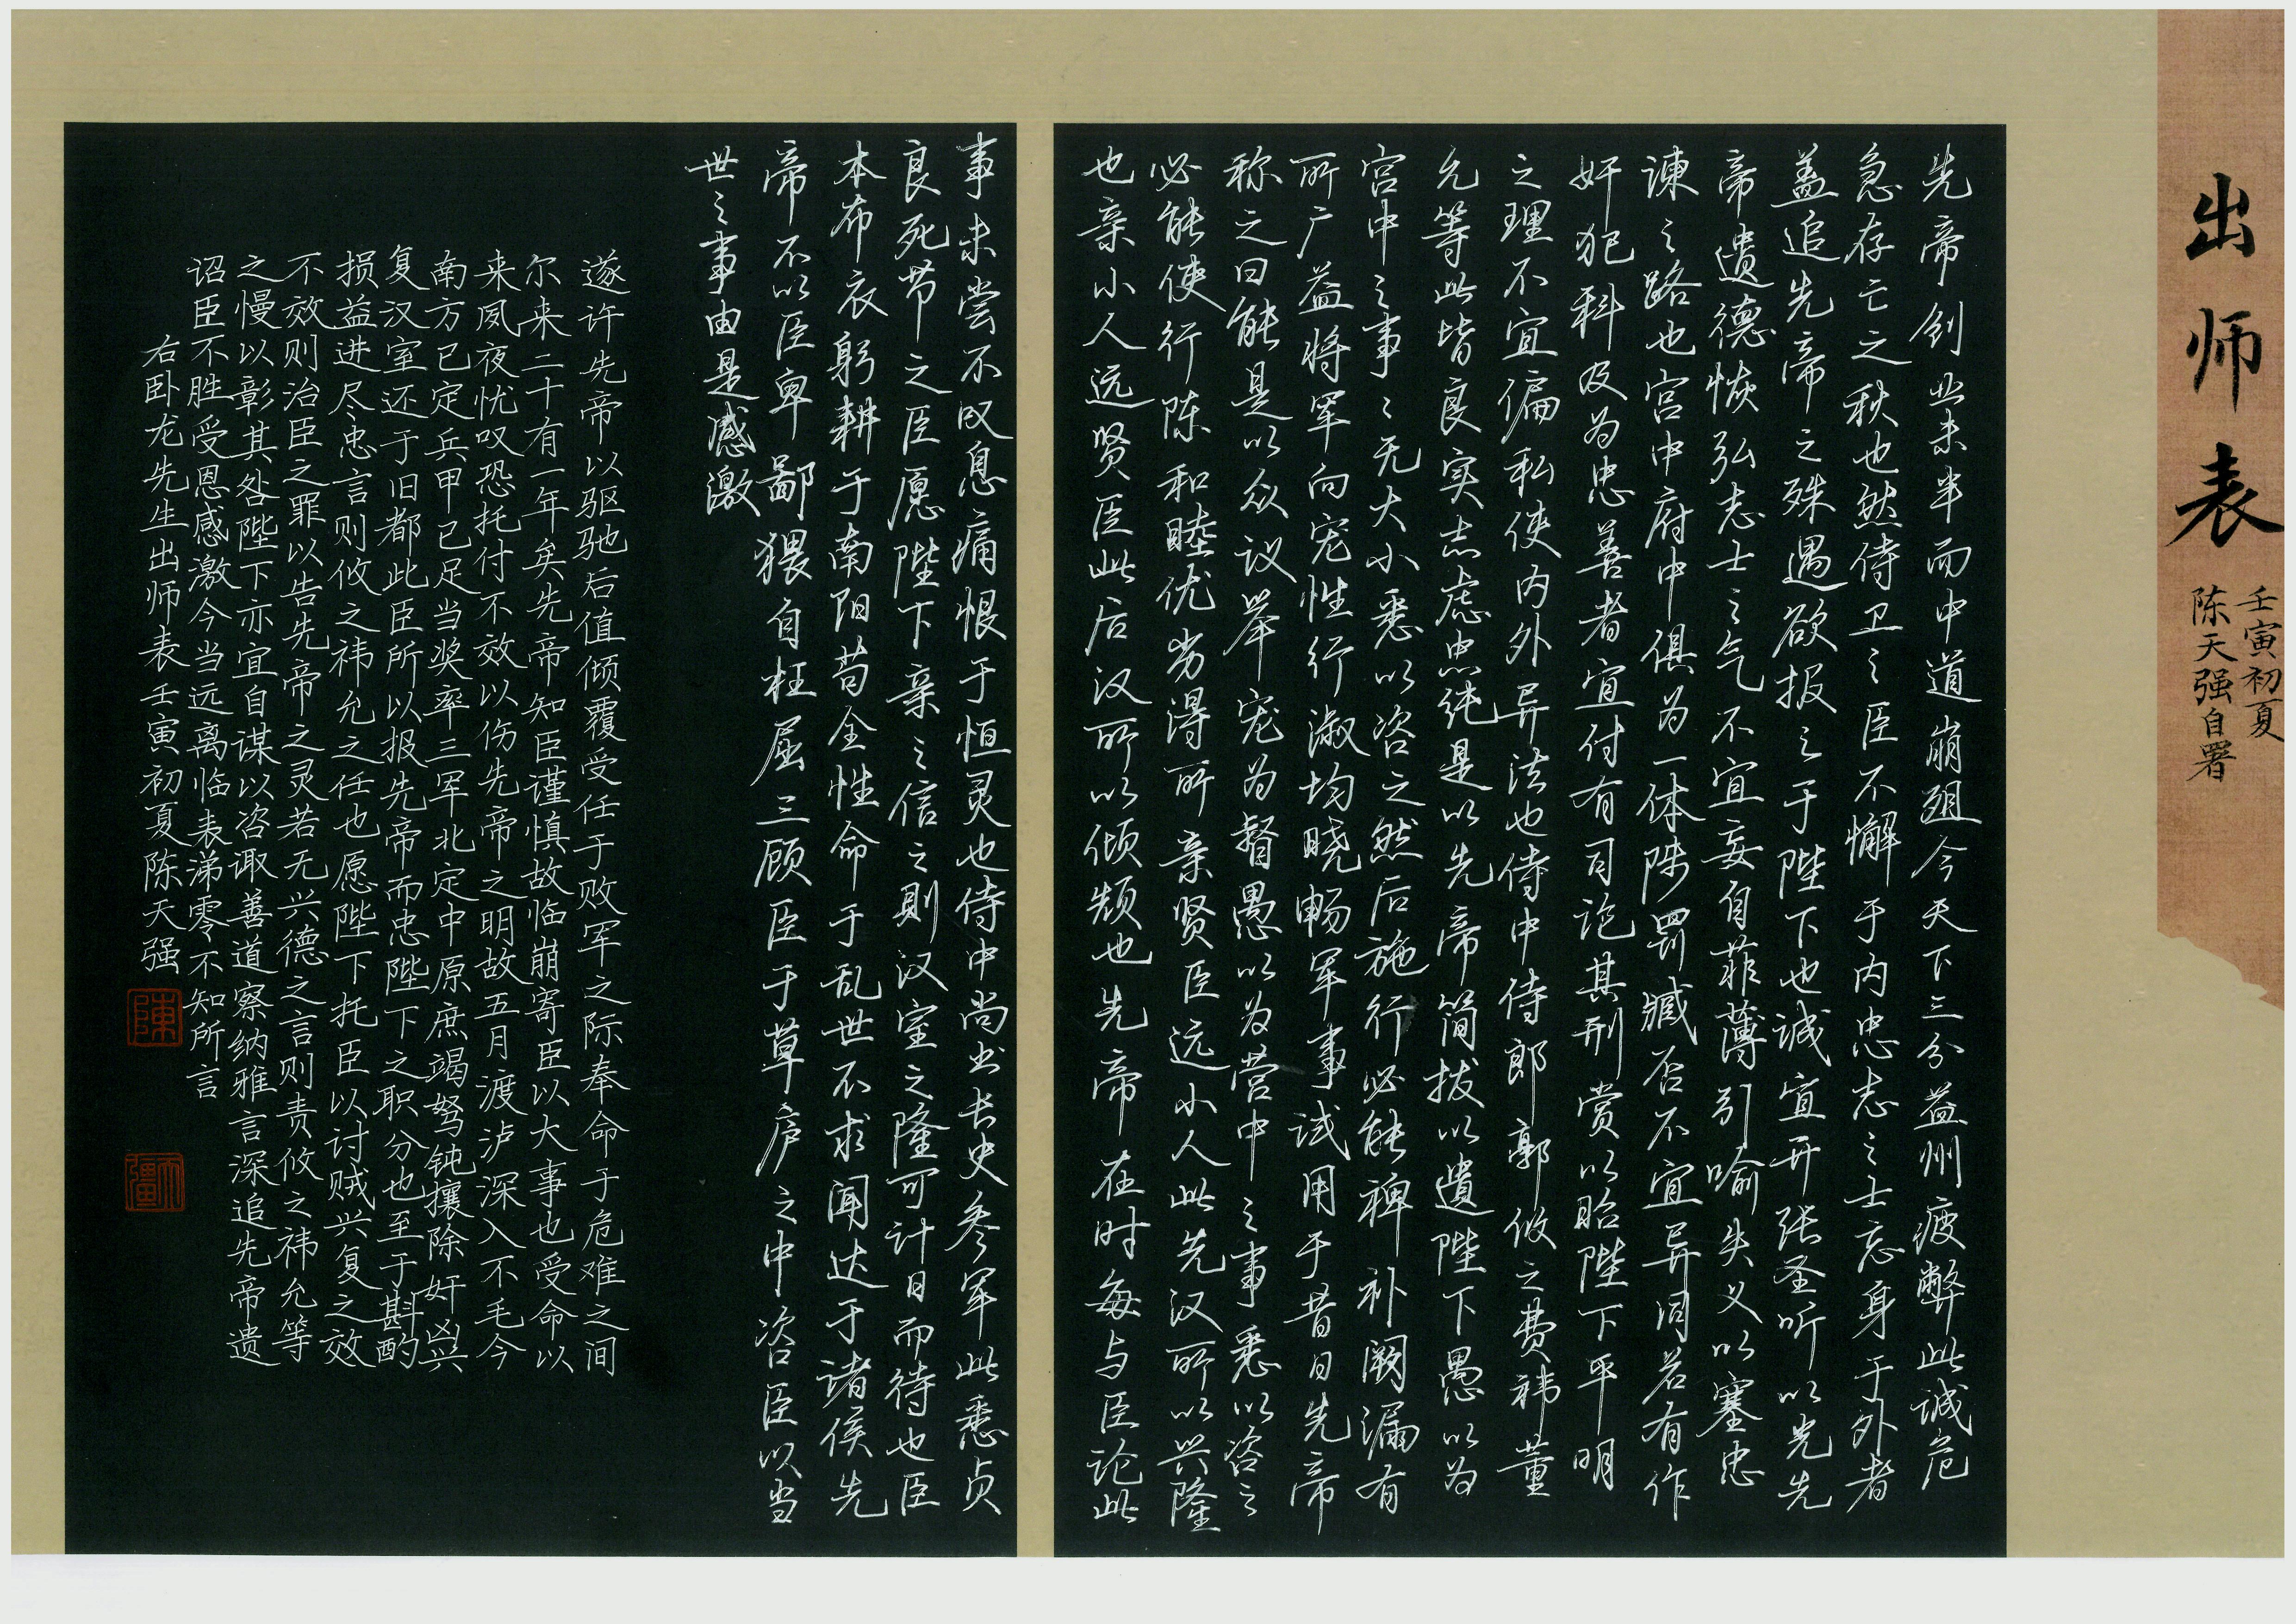 出师表
壬寅初夏
陈天强自署
先帝创业未半而中道崩殂今天下三分益州疲弊此诚危
急存亡之秋也然侍卫之臣不懈于内忠志之士忘身于外者
盖追先帝之殊遇欲报之于陛下也诚宜开张圣听以光先
帝遗德恢弘志士之气不宜妄自菲薄引喻失义以塞忠
谏之路也宫中府中俱为一体陟罚臧否不宜异同若有作
奸犯科及为忠善者宜付有司论其刑赏以昭陛下平明
之理不宜偏私使内外异法也侍中侍郎郭攸之费祎董
允等此皆良实志虑忠纯是以先帝简拔以遗陛下愚以为
宫中之事〻无大小悉以咨之然后施行必能裨补阙漏有
所广益将军向宠性行淑均晓畅军事试用于昔日先帝
称之曰能是以众议举宠为督愚以为营中之事悉以咨之
必能使行陈和睦优劣得所亲贤臣远小人此先汉所以兴隆
也亲小人远贤臣此后汉所以倾颓也先帝在时每与臣论此
事未尝不叹息痛恨于恒灵也侍中尚书长史参军此悉贞
良死节之臣愿陛下亲之信之則汉室之隆可计日而待也臣
本布衣躬耕于南阳苟全性命于乱世不求闻达于诸侯先
帝不以臣卑鄙猥自枉屈三顾臣于草庐之中咨臣以当
世之事由是感激
遂许先帝以驱驰后值倾覆受任于败军之际奉命于危难之间
尔来二十有一年矣先帝知臣谨慎故临崩寄臣以大事也受命以
来夙夜忧叹恐托付不效以伤先帝之明故五月渡泸深入不毛今
南方已定兵甲已足当奖率三军北定中原庶竭驽钝攘除奸凶兴
复汉室还于旧都此臣所以报先帝而忠陛下之职分也至于斟酌
损益进尽忠言则攸之祎允之任也愿陛下托臣以讨贼兴复之效
不效则治臣之罪以告先帝之灵若无兴德之言则责攸之祎允等
之慢以彰其咎陛下亦宜自谋以咨诹善道察纳雅言深追先帝遗
诏臣不胜受恩感激今当远离临表涕零不知所言
右卧龙先生出师表壬寅初夏陈天强
陳
天彊